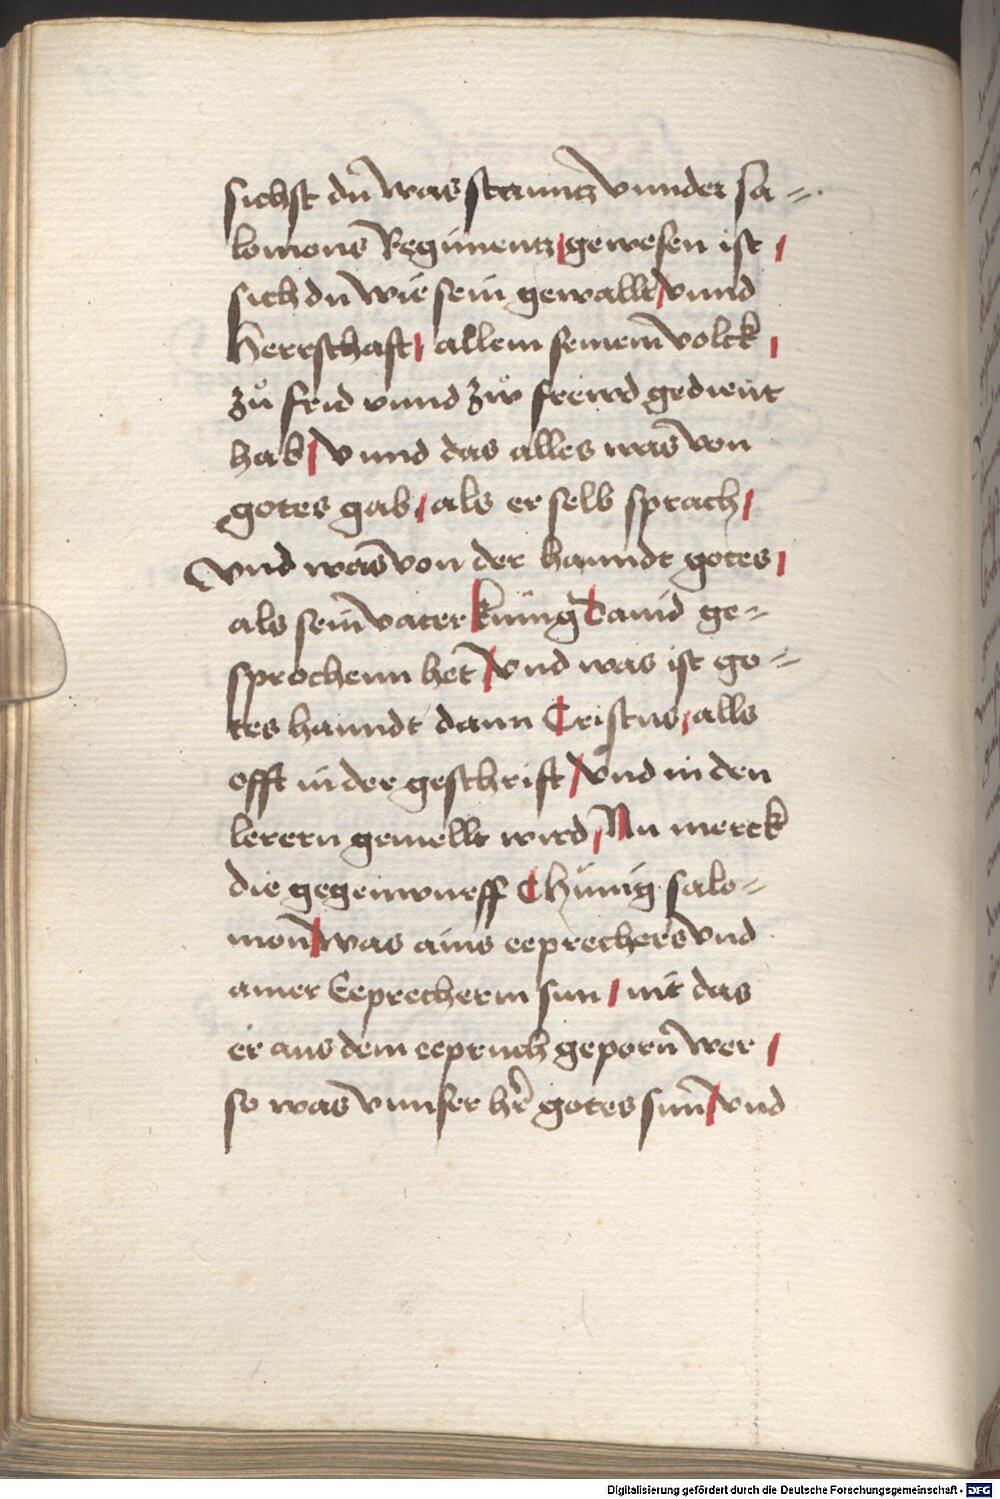 sichst dũ was stanntz vnnder sa=
lomons Regimentz / gewesen ist /
sich du wie sein gewallt / vnnd
Herrschafft / allem seinem volck /
zů frid vnnd zẘ frewd gedient
hab / vnnd das alles was von
gotes gab / als er selb sprach /
vnd was von der hanndt gotes /
als sein vater kunig dauid ge=
sprochenn het / vnd was ist go=
tes hanndt dann Cristus / alls
offt in der geschrift / vnd in den
lerern gemellt wird / Nu merck
die gegenwurff Chůnig salo=
mon / was ains eeprechers vnd
ainer Eeprecherin sun / nit das
er aus dem eepruch geporñ wer /
so was vnnser hr̃ gotes sun / vnd
Digitalisierung gefördert durch die Deutsche Forschungsgemeinschaft - DFG